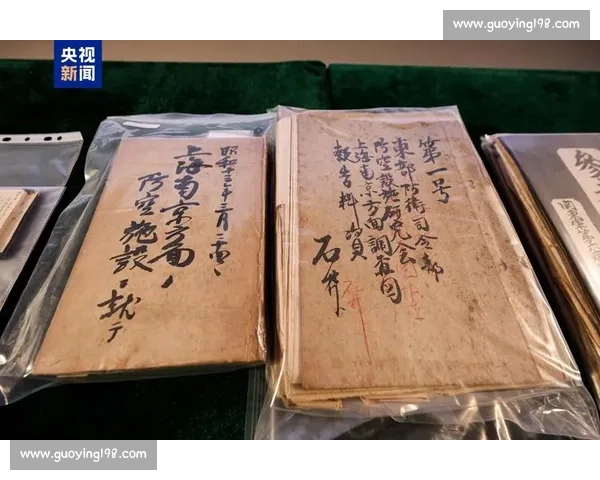 www.guoying198.com
央视
新闻
昭和十三年三月
上海南京方面ノ
防空施設ニ就テ
第一号
東部防衛司令部
防空施設研究会
上海南京方面調査団
報告
石井
www.guoying198.com